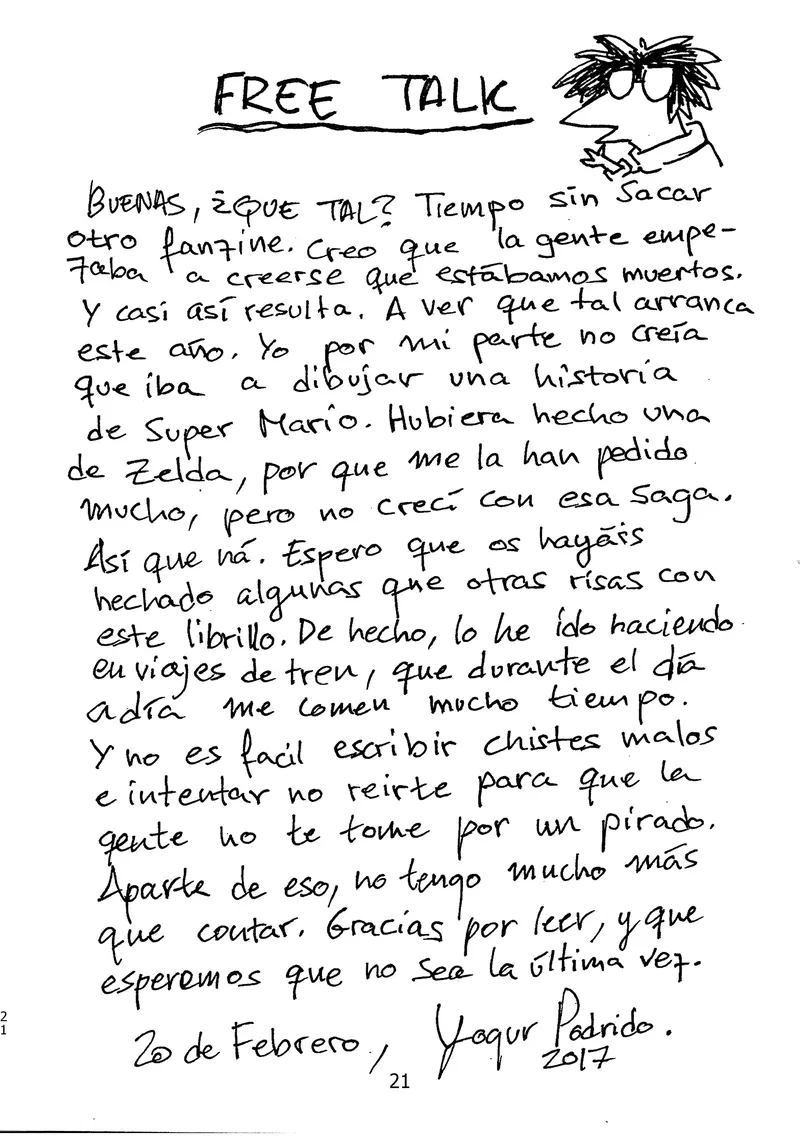 FREE TALK
BUENAS, ¿QUE TAL? Tiempo sin sacar
otro fanzine. Creo que la gente empe-
zaba a creerse que estábamos muertos.
Y casi así resulta. A ver que tal arranca
este año. Yo por mi parte no creía
que iba a dibujar una historia
de Super Mario. Hubiera hecho una
de Zelda, por que me la han pedido
mucho, pero no crecí con esa saga.
Así que ná. Espero que os hayáis
hechado algunas que otras risas con
este librillo. De hecho, lo he ido haciendo
en viajes de tren, que durante el día
a día me comen mucho tiempo.
Y no es facil escribir chistes malos
e intentar no reirte para que la
gente no te tome por un pirado.
Aparte de eso, no tengo mucho más
que contar. Gracias por leer, y que
esperemos que no sea la última vez.
20 de Febrero, Yogur Podrido.
2017
21
21